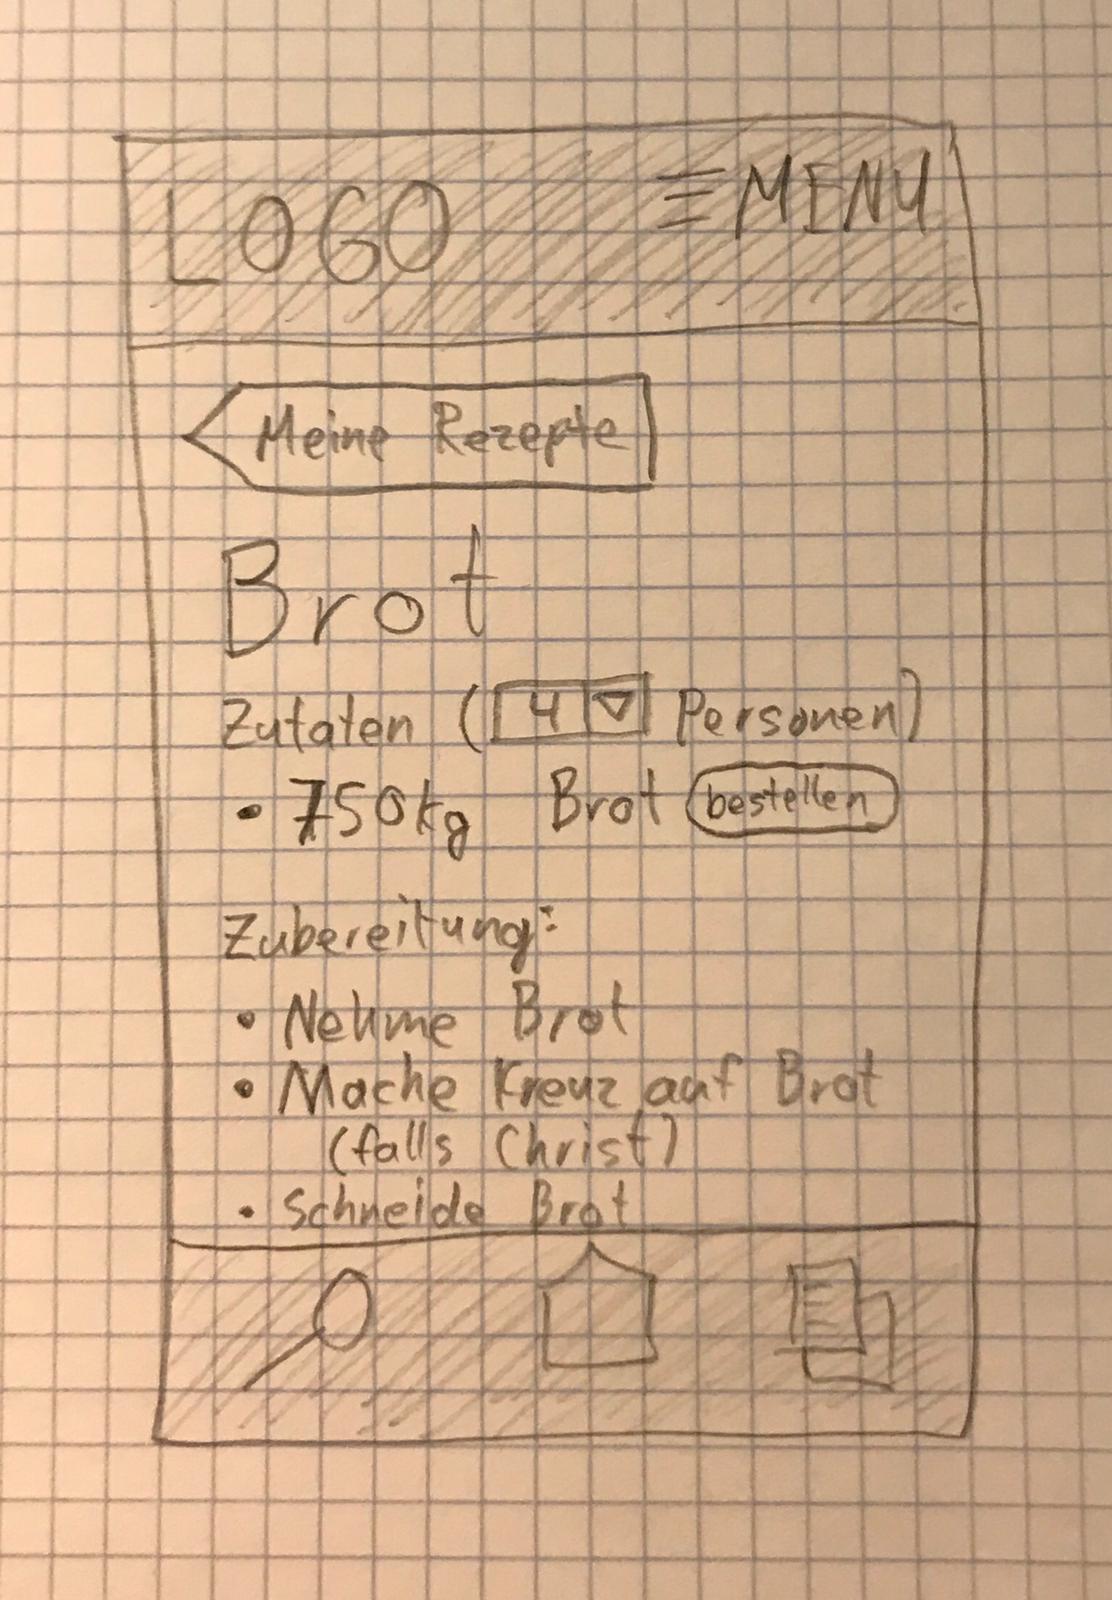 LOGO
MENU
Meine Rezepte
Brot
Zutaten (4 Personen)
• 750kg Brot bestellen
Zubereitung:
• Nehme Brot
• Mache Kreuz auf Brot
(falls Christ)
• Schneide Brot